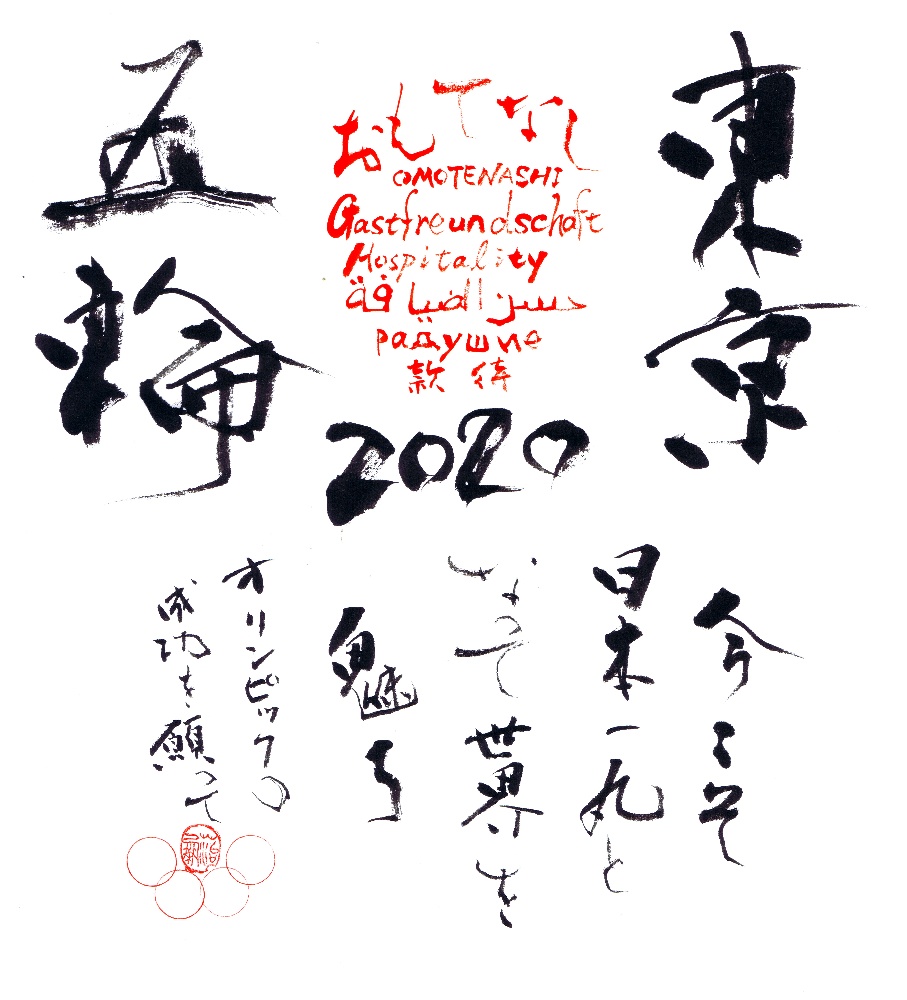 東京
おもてなし
OMOTENASHI
Gastfreundschaft
Hospitality
حسن الضيافة
радушие
款待
2020
五輪
今こそ
日本一丸と
なって世界を
魅了
オリンピックの
成功を願って